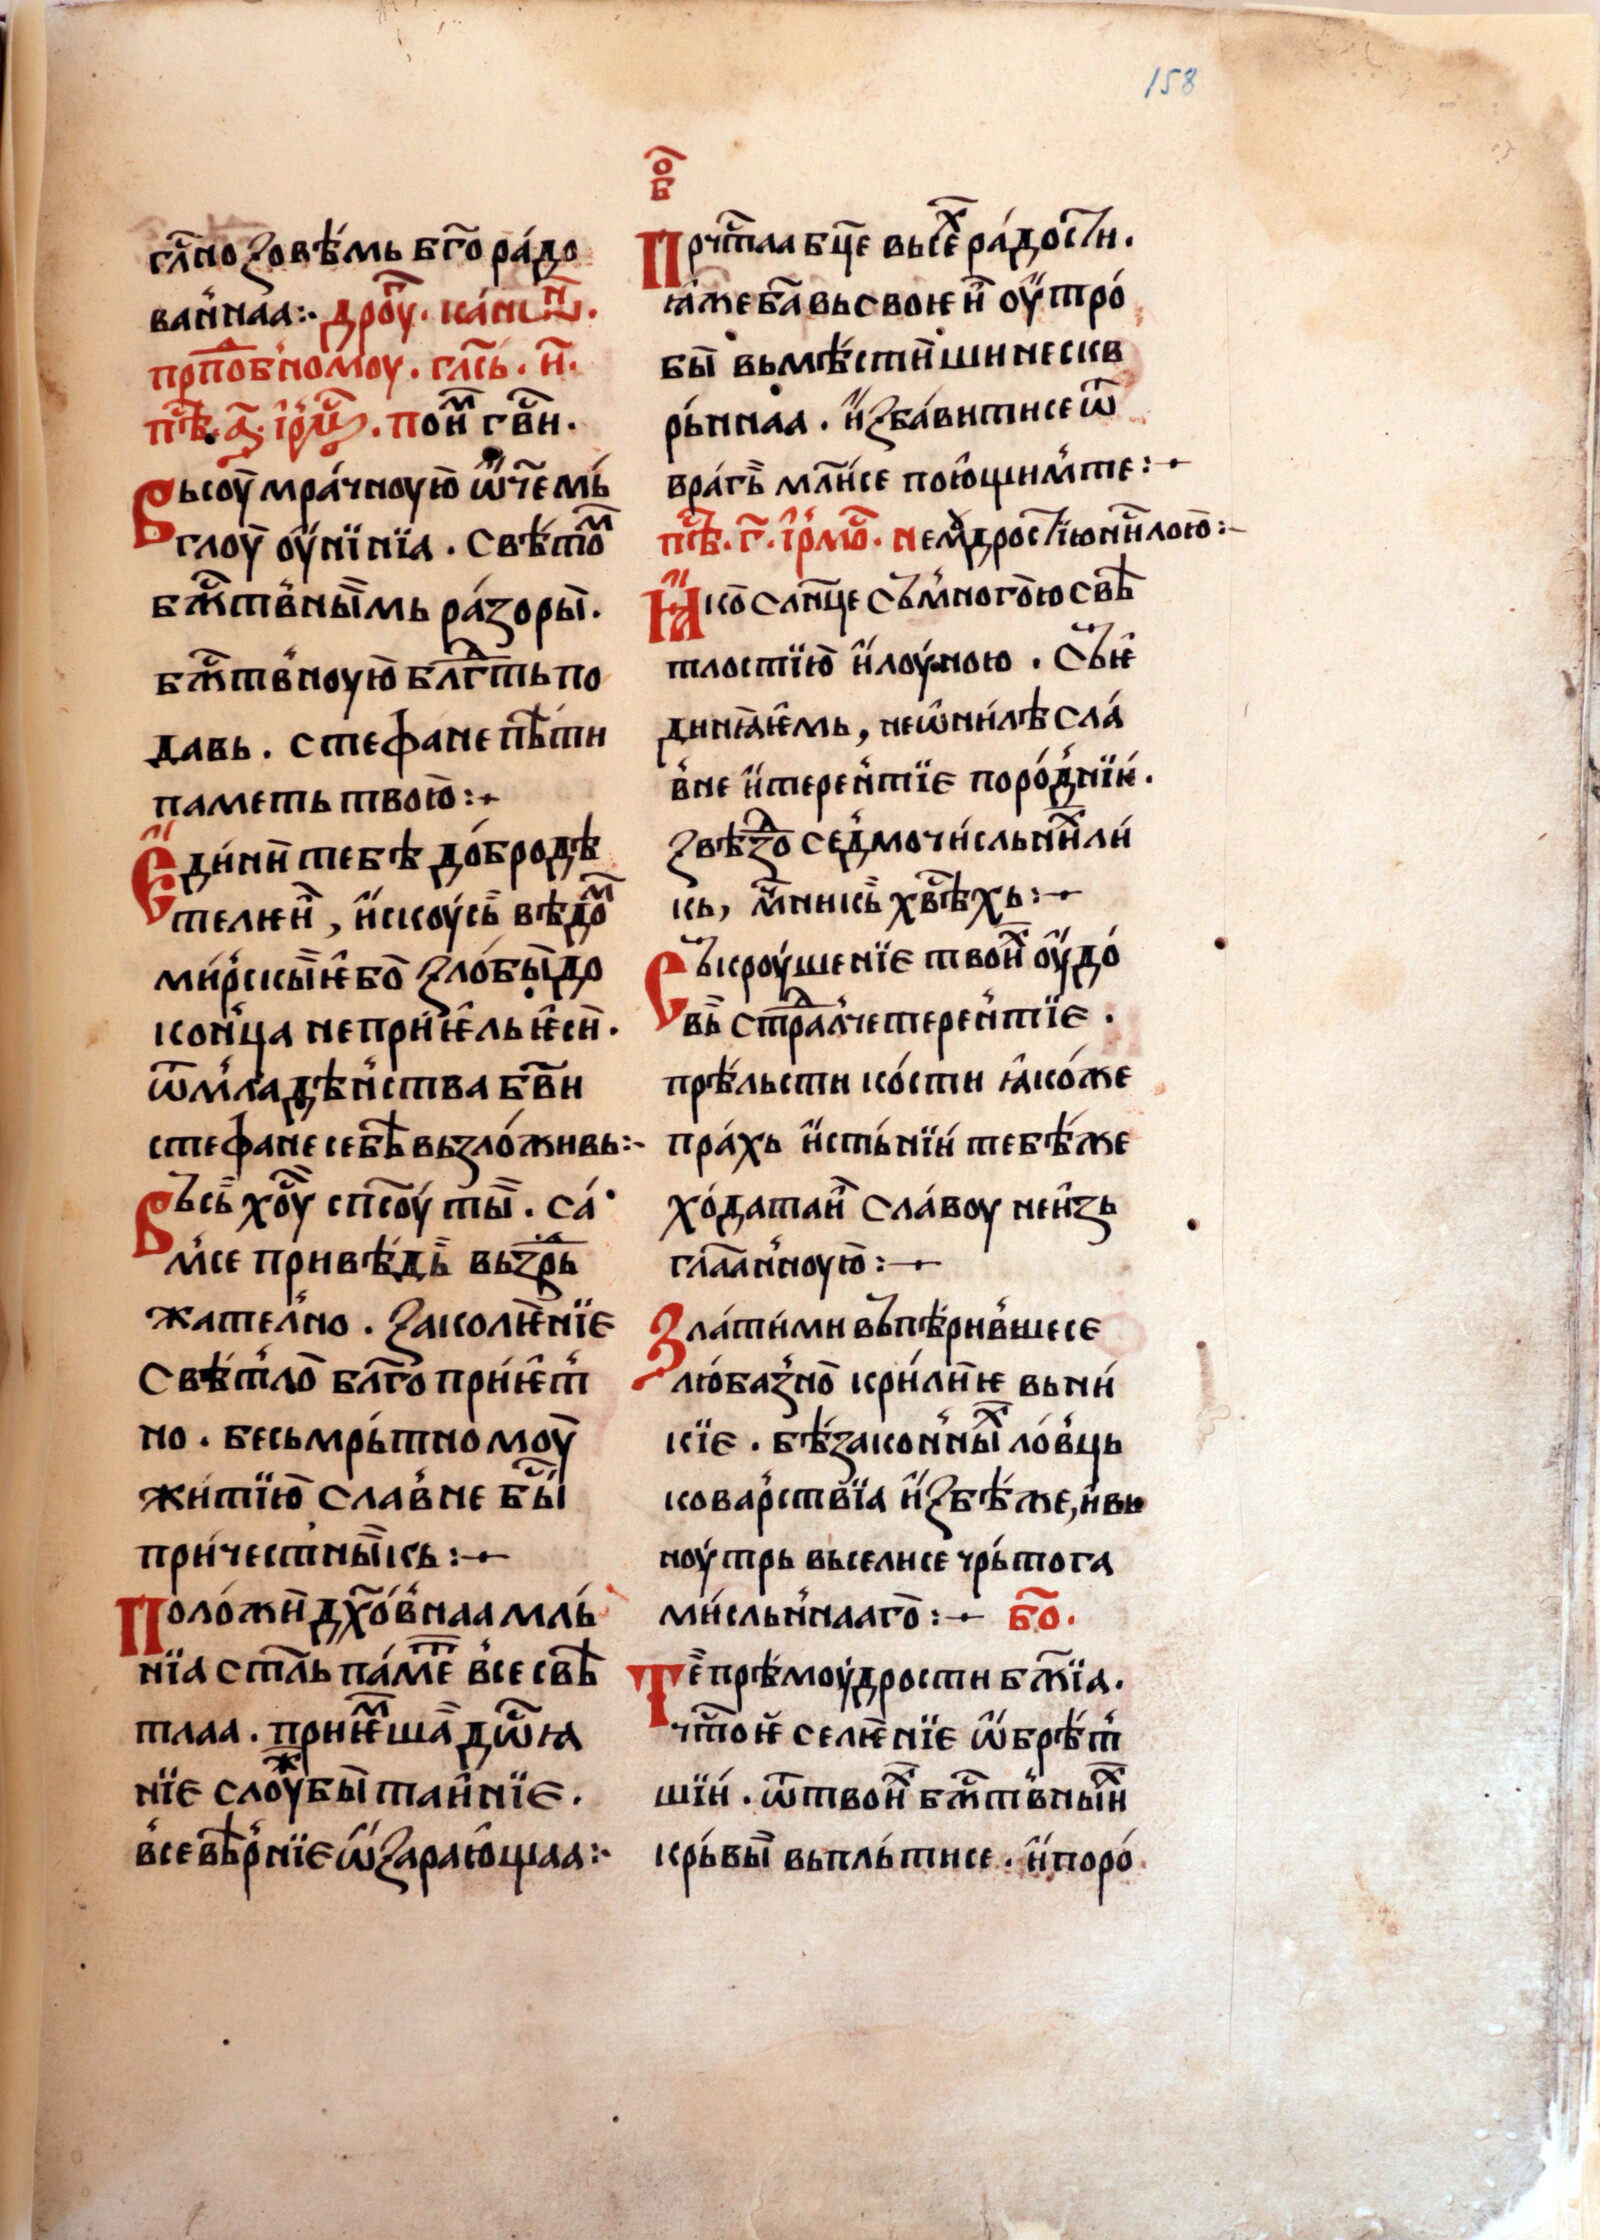 158
гл҃но зовѣ́мь бг҃о ра́до
ва́ннаа:· дрꙋ́г. ка́нѡн.
прпдⷪбномоу. гла́сь. и҃.
пѣⷭ. а҃. і҆рмⷭ. поиⷨ гв҃и.
Вьсоу̀ мра́чноую̀ ѿче мь́
глоу̀ оу҆ни́нїа. свѣ́тоⷨ
бж҃ⷭтв́ны̀мь ра́зоры̀.
бж҃ⷭтв́ноую̀ блгⷣть по
давь. стефане пѣ́ти
паметь твою̀:~
Е҆ди́нѝ тебѣ до́бродѣ
телѥи҆̀, и҆скоу́сь̀ вѣ́доⷨ
ми́рскы̀ѥ҆ бо̀ зло́бы̀ до
кон́ца непри́ѥ҆ль ѥ҆сѝ.
ѿ мла́дѣн́ства бг҃ви
стефане себѣ̀ вьзло́живь:~
Въсь̀ хⷭ҇оу̀ сп҃соу́ ты̀. са́
м́се привѣ́дь̀ вьзⷣрь
жателно. заколѥ̀нїе
свѣ́тло̀ бл҃го прїѥ҆т́
но. бесьмрь́тномоу̀
жи́тїю̀ слав́не бы́
при́честны̀кь:~
Поло́жѝ дх҃о́в́наа мль́
нїа ст҃ль па́меⷮ в́се свѣ̀
тлаа. прїѥⷨша̀ дѡⷭꙗ
нїе слоуⷤбы̀ таи́нїе.
в́се вѣ́рнїе ѡ҆зараю҆щаа:·
о҃в
Прчⷭ҇таа бц҃е вьсеⷯ ра́дости.
ꙗ҆же ба҃ вь своѥи҆̀ оу҆тро́
бы̀ вьмѣ́стѝши нескв
рь́ннаа. и҆зба́витисе ѿ
вра́гь̀ мл҃и́се пою҆щим́те:~
пѣⷭ. г҃. і҆рмоⷭ. не мⷣростїю и҆ силою̀:~
Ꙗ҆ко̀ сл҃нце съ́ многою̀ свѣ̀
тлостїю̀ и҆ лоу́ною. съѥ҆
динꙗ́ѥ҆мь, неѡ҆ни́лѣ сла́
в́не и҆ терен́тїе поро́днїи́.
звѣ́зⷣо се́дмочи́сльниⷯ ли́
кь, мⷱ҇никь̀ хв҃ѣⷭхь:~
Съкроушенїе твоиⷯ оу҆до́
вь̀ страⷣл́че терен́тїе.
прѣ́льсти ко́сти ꙗ҆ко́же
пра́хь и҆сть́нїи́ тебѣ́же
хо́датаѝ сла́воу неи҆зь
гл҃аан́ноую̀:~
Зла́ти́ми въпѣ́рив́шесе
лю́баз́но̀ кри́лѥ̀ вьни́
кїе. бѣ́закон́ныⷯ ло́в́ць
ковар́ствїа и҆збѣ́же, и҆ вь
ноу́трь вьселисе чрь́тога
ми́сльн́нааго̀:~ бо҃.
Тѐ прѣмоу́дрости бж҃їа.
чⷭ҇тоѥ̀ селѥ́нїе ѡ҆брѣ́т́
шїи́. ѿ твоиⷯ бж҃ⷭтв́ныиⷯ
крь́вы̀ вьпль́тисе. и҆ поро́